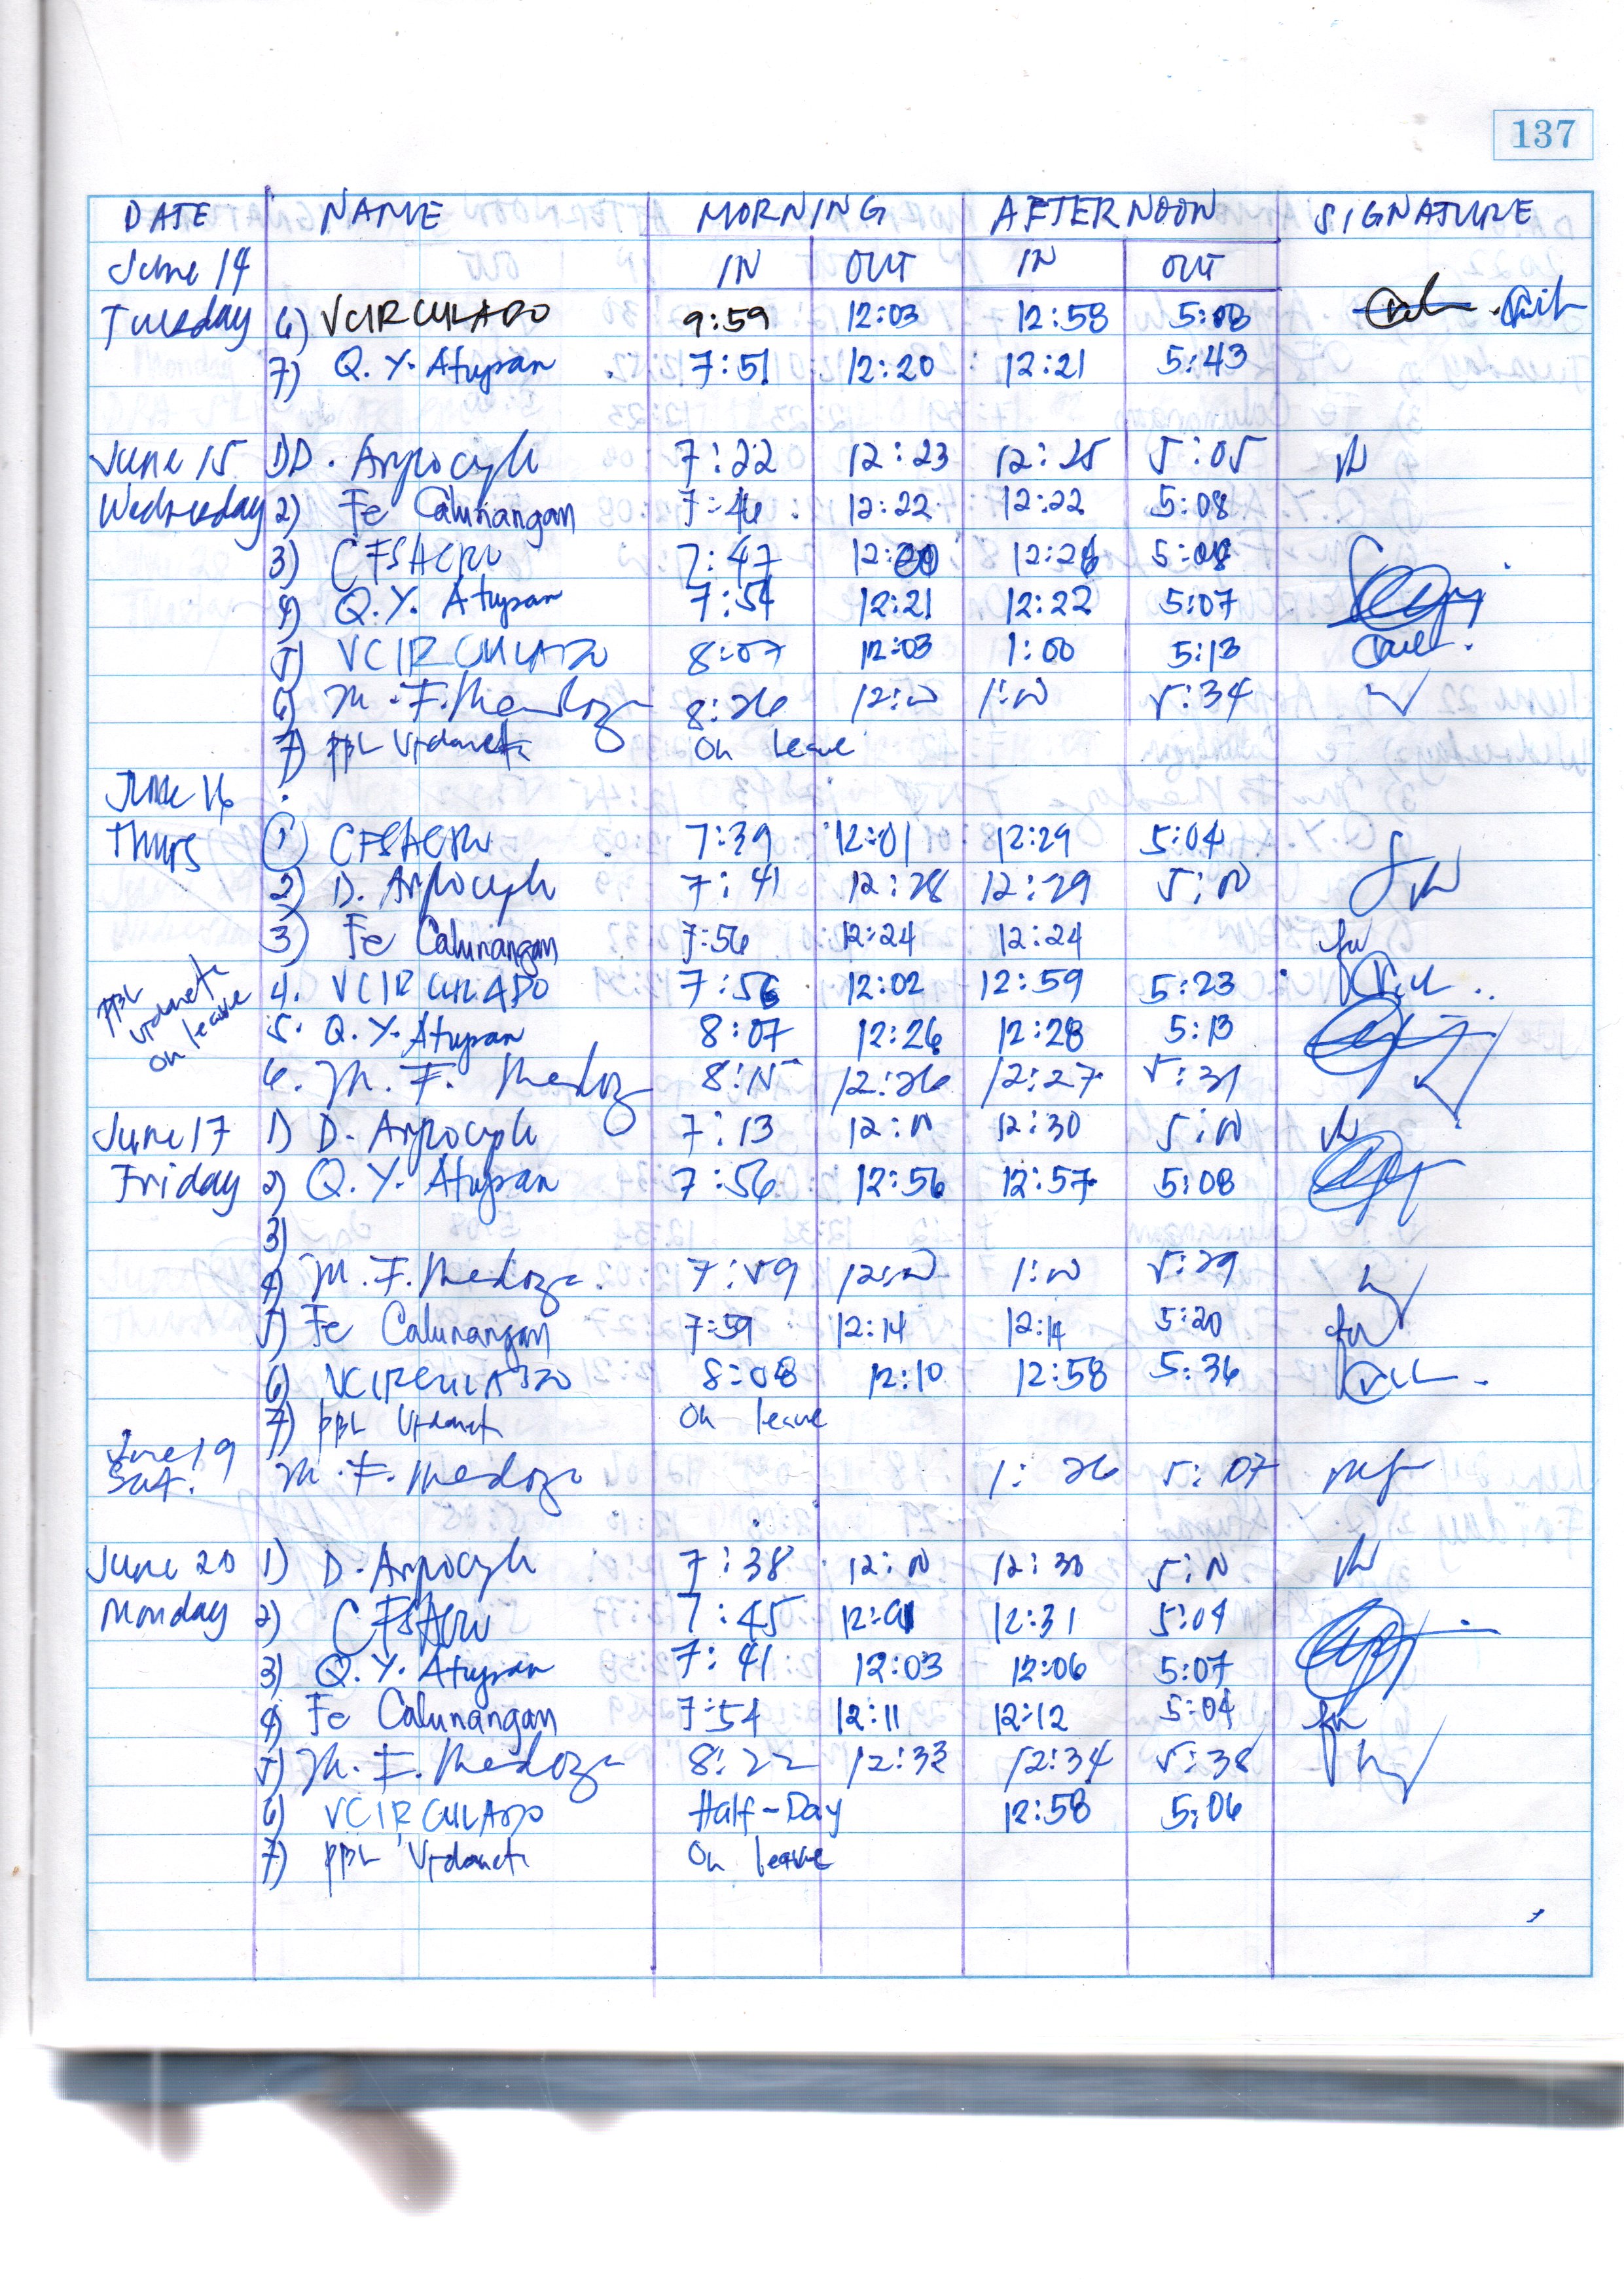 137
DATE NAME MORNING AFTERNOON SIGNATURE
June 14 IN OUT IN OUT
Tuesday 6) VCIRCULADO 9:59 12:03 12:58 5:03
7) Q. Y. Atupan 7:51 12:20 12:21 5:43
June 15 1) D. 7:22 12:23 12:25 5:05
Wednesday 2) Fe Calunangan 7:46 12:22 12:22 5:08
3) CFSACRO 7:47 5:08
4) Q. Y. Atupan 7:54 12:21 12:22 5:07
5) VCIRCULADO 8:07 12:03 1:00 5:13
6) M. F. Mendoza 8:26 12:00 1:00 5:34
7) On leave
June 16
Thurs 1) CFSACRO 7:39 12:01 12:29 5:04
2) D. 7:41 12:28 12:29
3) Fe Calunangan 7:56 12:24 12:24
4. VCIRCULADO 7:56 12:02 12:59 5:23
on leave
5. Q. Y. Atupan 8:07 12:26 12:28 5:13
6. M. F. Mendoza 12:26 12:27 5:31
June 17 1) D. 7:13 12:30
Friday 2) Q. Y. Atupan 7:56 12:56 12:57 5:08
3)
4) M. F. Mendoza 7:59 12:00 1:00 5:29
5) Fe Calunangan 7:59 12:14 12:14 5:20
6) VCIRCULADO 8:08 12:10 12:58 5:36
7) On leave
June 19
Sat. M. F. Mendoza 1:26 5:07
June 20 1) D. 7:38 12:30
Monday 2) CFSACRO 7:45 12:31 5:04
3) Q. Y. Atupan 7:41 12:03 12:06 5:07
4) Fe Calunangan 7:54 12:11 12:12 5:04
5) M. F. Mendoza 8:22 12:33 12:34 5:38
6) VCIRCULADO Half-Day 12:58 5:06
7) On leave